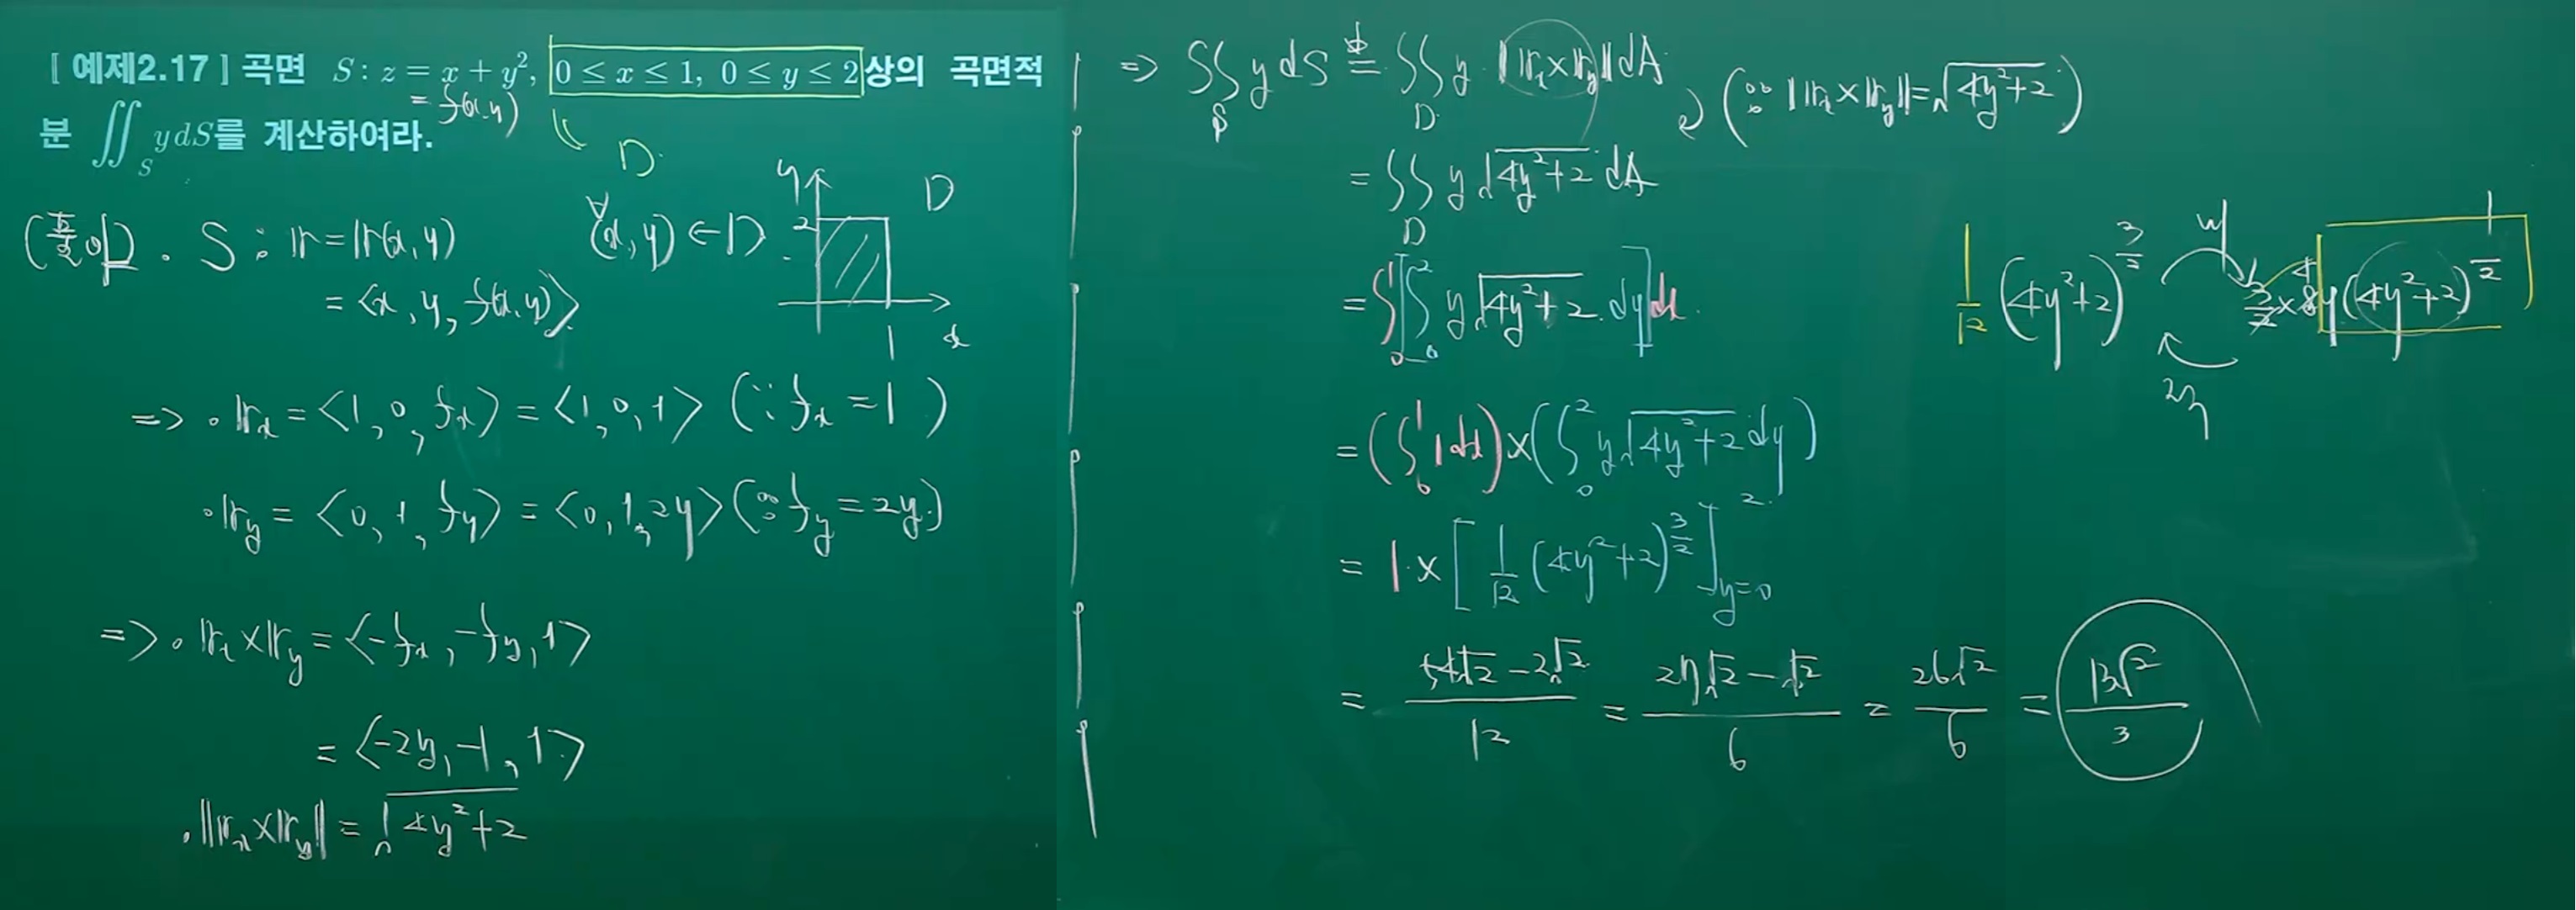 [ 예제2.17 ] 곡면 S : z = x + y², 0 ≤ x ≤ 1, 0 ≤ y ≤ 2 상의 곡면적
= f(x,y)
분 ∬_S y dS를 계산하여라.
D
(풀이) . S : r = r(x, y) ∀(x, y) ∈ D
= <x, y, f(x,y)>
y 2 D 1 x
=> . r_x = <1, 0, f_x> = <1, 0, 1> (∵ f_x = 1 )
. r_y = <0, 1, f_y> = <0, 1, 2y> (∵ f_y = 2y)
=> . r_x × r_y = <-f_x, -f_y, 1>
= <-2y, -1, 1>
. ||r_x × r_y|| = √(4y²+2)
=> ∬_S y dS = ∬_D y ||r_x × r_y|| dA (∵ ||r_x × r_y|| = √(4y²+2))
= ∬_D y √(4y²+2) dA
= ∫_0^1 [∫_0^2 y √(4y²+2) dy] dx
= (∫_0^1 1 dx) × (∫_0^2 y √(4y²+2) dy)
= 1 × [1/12 (4y²+2)^(3/2)]_{y=0}^{2}
= (54√2 - 2√2)/12 = (27√2 - √2)/6 = 26√2/6 = 13√2/3
1/12 (4y²+2)^(3/2) 미 3/2 × 8y(4y²+2)^(1/2) 4
적